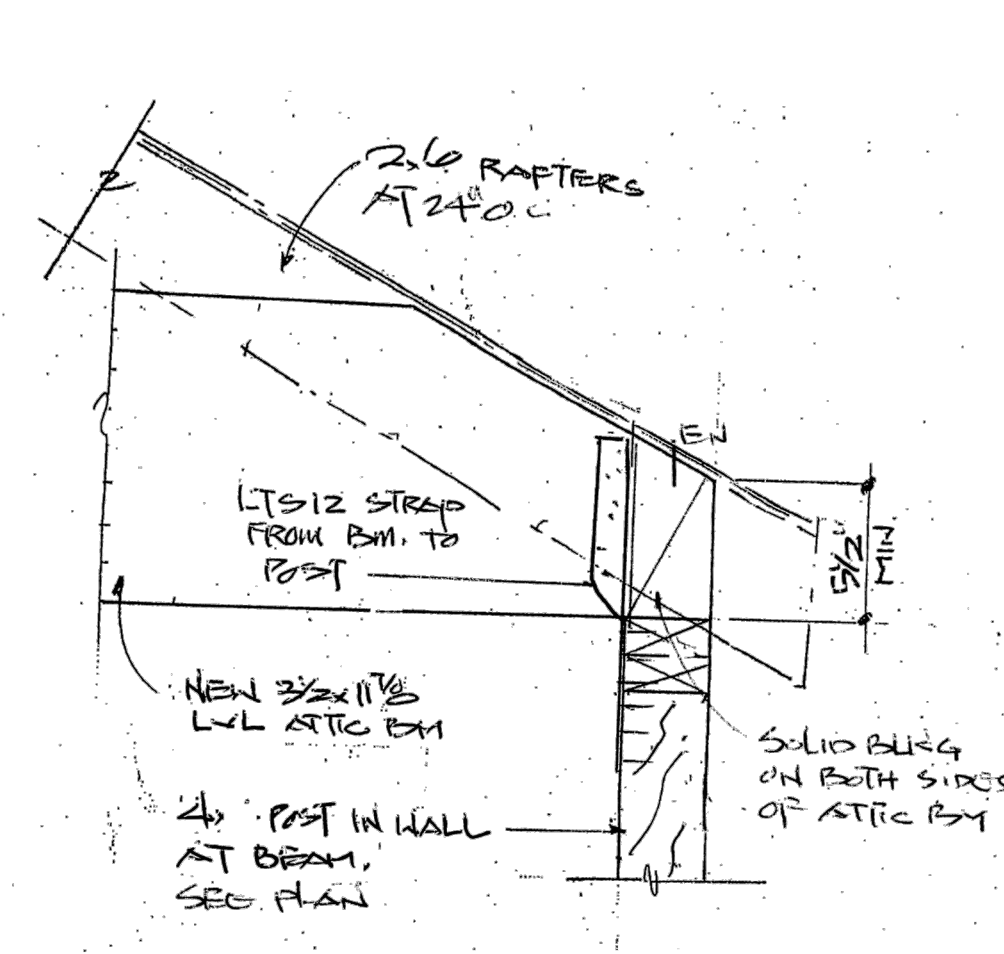 2x6 RAFTERS
AT 24" O.C
EN
LTS12 STRAP
FROM BM. TO
POST
5 1/2"
MIN
NEW 3 1/2 x 11 7/8
LVL ATTIC BM
SOLID BLKG
ON BOTH SIDES
OF ATTIC BM
4x POST IN WALL
AT BEAM.
SEE PLAN